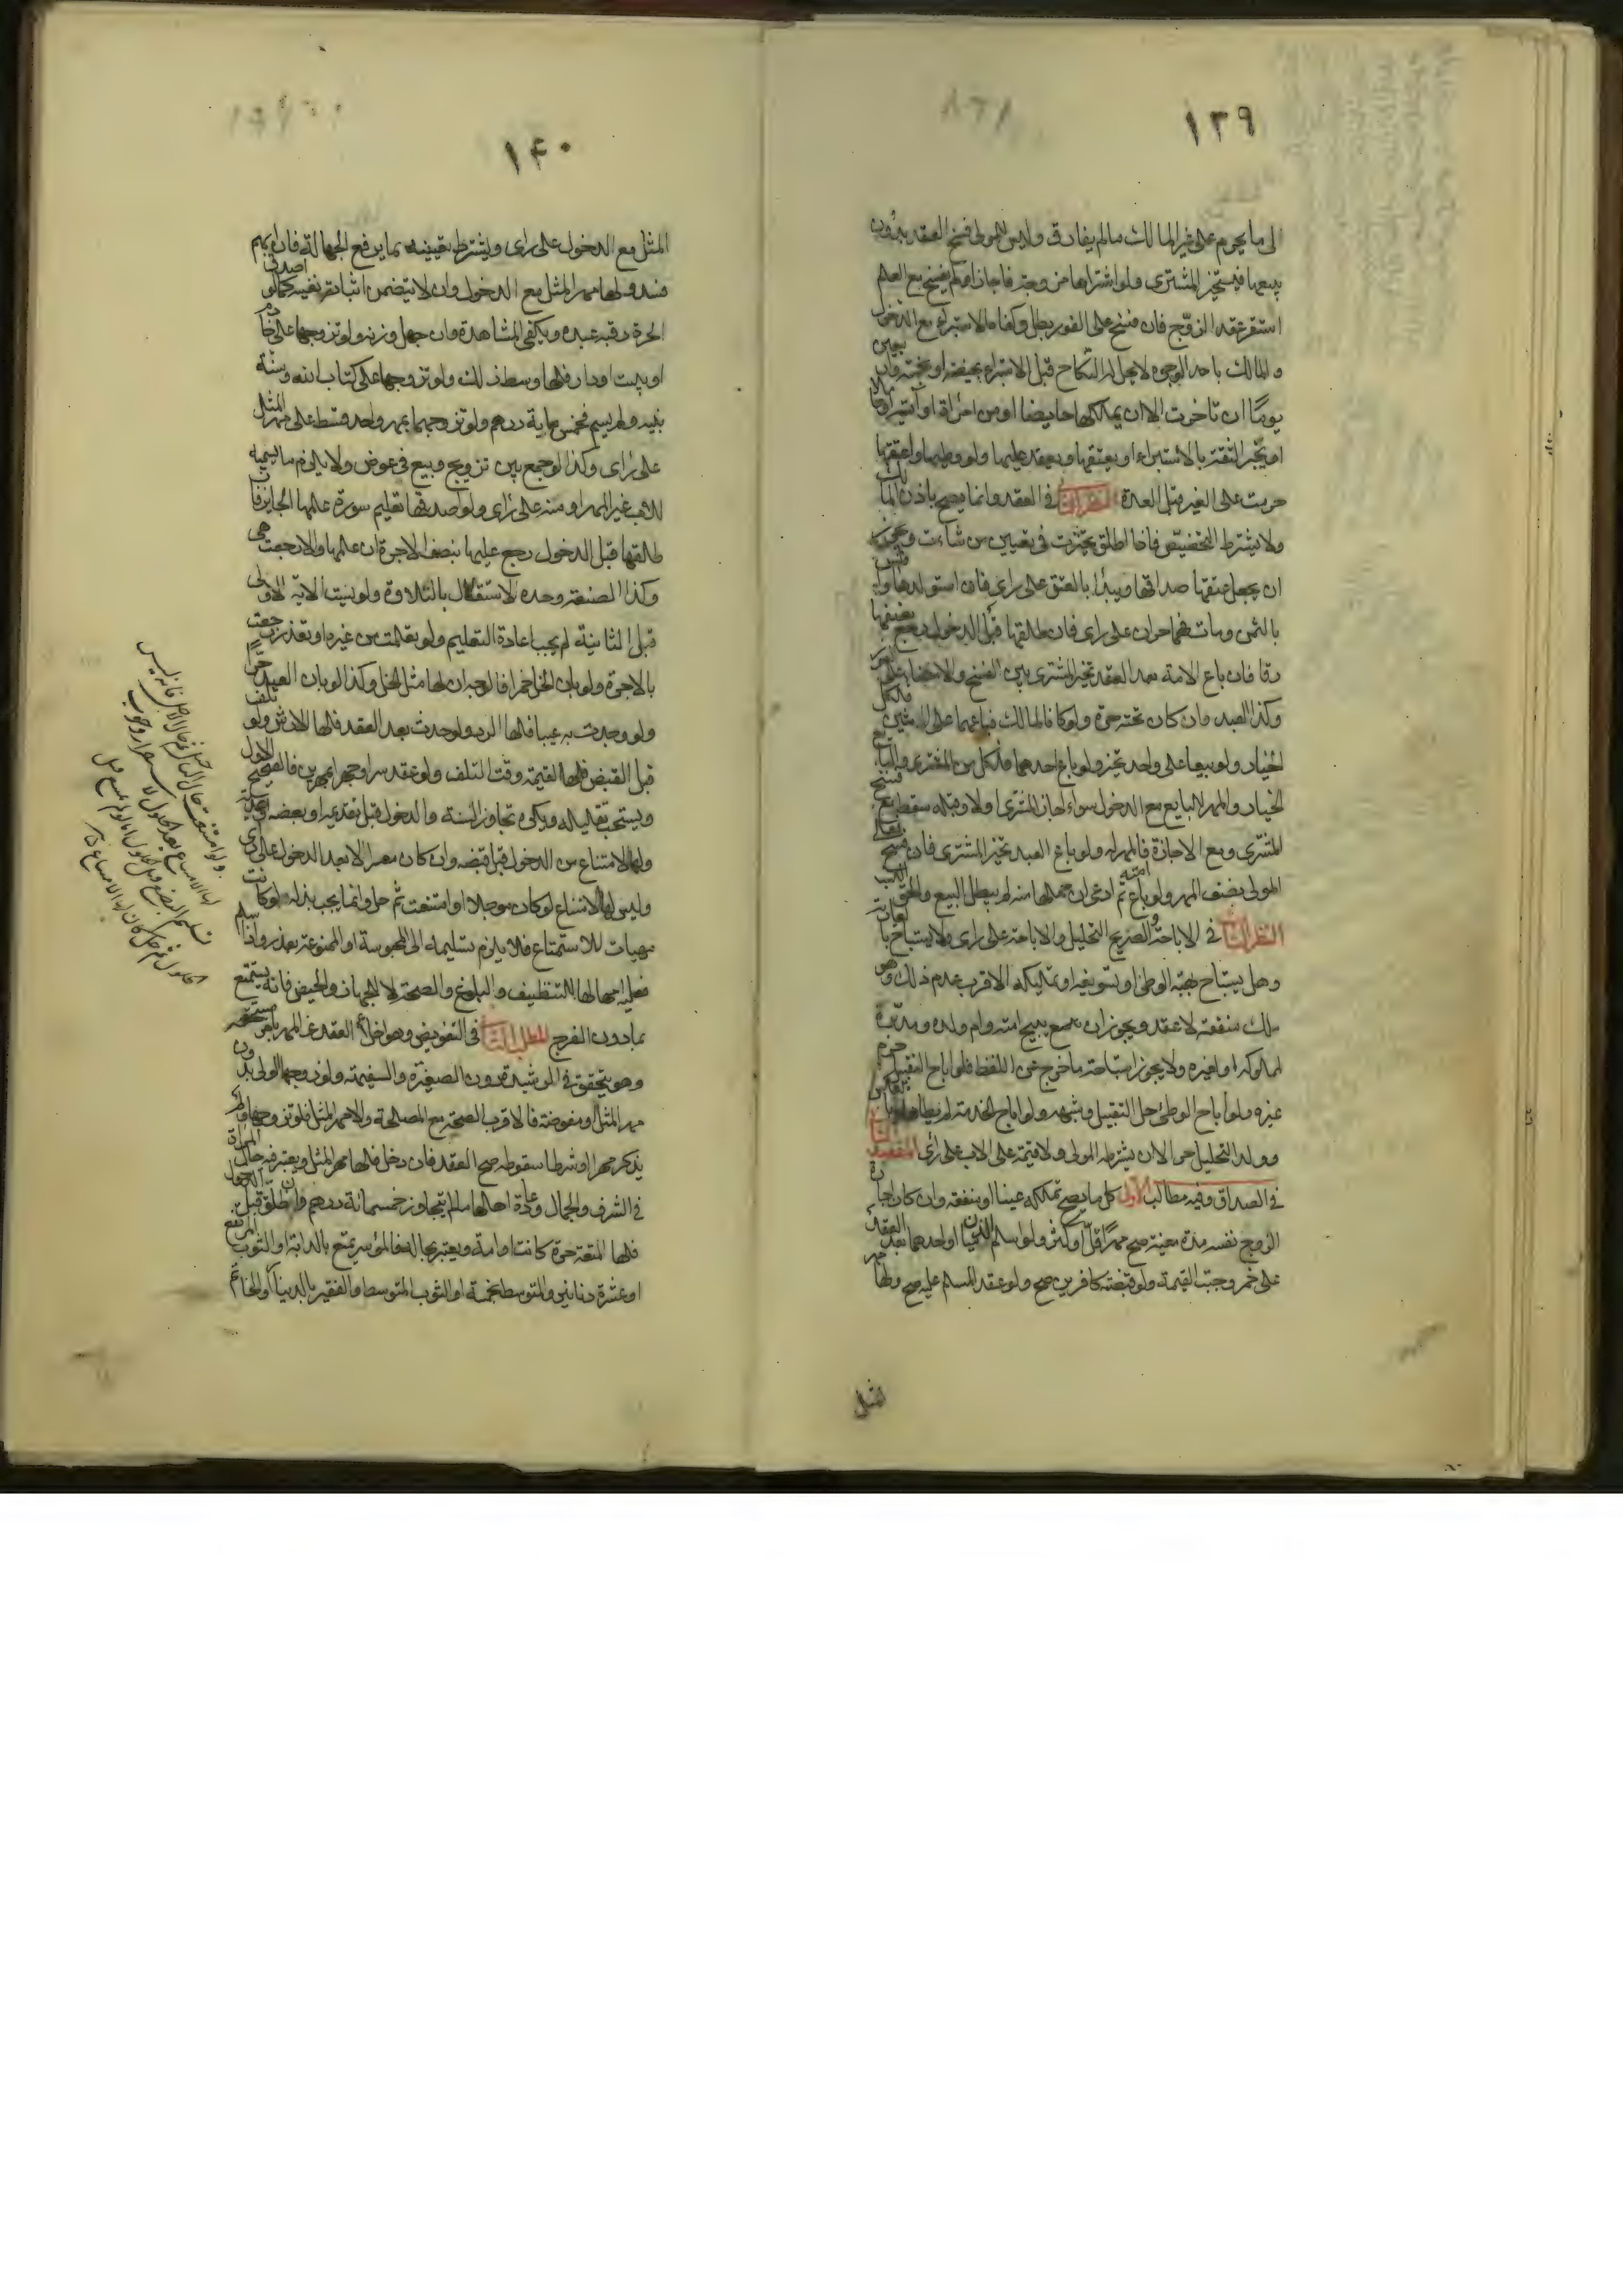 ١٣٩
الى ما يحرم على غير المالك مالم يفارق وليس للمولى فسخ العقد بدون
بيعها فيتخير المشترى ولو اشتراها من زوجته فاجاز او لم يفسخ مع العلم
استقر عقد الزوج فان فسخ على الفور بطل وكفاه الاستبراء مع الدخول
والمالك باحد الوجوه لا يحل له النكاح قبل الاستبراء بحيضة او بخمسة واربعين
يوما ان تاخرت الا ان يملكها حايضا او من امرأة او
او يخبر الثقة بالاستبراء او يعتقها ويعقد عليها ولو وطئها واعتقها
حرمت على الغير قبل العدة النظر الثانى فى العقد وانما يصح باذن المالك
ولا يشترط التخصيص فاذا اطلق تخيرت فى تعيين من شاءت ويجوز
ان يجعل عتقها صداقها ويبدأ بالعتق على راى فان استولدها وافلس
بالثمن ومات فهما حران على راى فان طلقها قبل الدخول رجع نصفها
رقا فان باع الامة بعد العقد تخير المشترى بين الفسخ والامضاء على الفور
وكذا العبد وان كان تحته حرة ولو كانا لمالك فباعهما على اثنين فلكل
الخيار ولو بيعا على واحد تخير ولو باع احدهما فلكل من المشترى والبايع
الخيار والمهر للبايع مع الدخول سواء اجاز المشترى او لا وقبله سقط مع فسخ
المشترى ومع الاجازة فالمهر له ولو باع العبد تخير المشترى فان فسخ فعلى
المولى نصف المهر ولو باع امته ثم ادعى ان حملها منه لم يبطل البيع والحق النسب
النظر الثالث فى الاباحة الصريح التحليل والاباحة على راى ولا يستباح بالعارية
وهل يستباح بهبة الوطئ او تسويغه او تمليكه الاقرب عدم ذلك وهو
ملك منفعة لا عقد ويجوز ان يبيح امته وام ولده ومدبرة
لمملوكه او لغيره ولا يجوز استباحة ما خرج عن اللفظ فلو اباح التقبيل حرم
غيره ولو اباح الوطئ حل التقبيل وشبهه ولو اباح الخدمة لم يطأها وبالعكس
وولد التحليل حر الا ان يشترطه المولى ولا قيمة على الاب على راى المقصد الثالث
فى الصداق وفيه مطالب الاول كل ما يصح تملكه عينا او منفعة وان كان اجارة
الزوج نفسه مدة معينة صح مهرا قل او كثر ولو اسلم الذميان او احدهما بعد العقد
على خمر وجبت القيمة ولو قبضته كافرين صح ولو عقد المسلم عليه صح ولها مهر
المثل
١۴٠
المثل مع الدخول على راى ويشترط تعيينه بما يرفع الجهالة فان ابهم
فسد ولها مهر المثل مع الدخول وان لا يتضمن اثباته نفيه كما لو اصدق
الحرة رقبة عبده ويكفى المشاهدة وان جهل وزنه ولو تزوجها على خادم
او بيت او دار فلها وسط ذلك ولو تزوجها على كتاب الله وسنة
نبيه ولم يسم فخمس ماية درهم ولو تزوجهما بمهر واحد قسط على مهر المثل
على راى وكذا لو جمع بين تزويج وبيع فى عوض ولا يلزم ما يسميه
للاب غير المهر او منه على راى ولو اصدقها تعليم سورة علمها الجايز فان
طلقها قبل الدخول رجع عليها بنصف الاجرة ان علمها والا رجعت هى
وكذا الصنعة وحده الاستقلال بالتلاوة ولو نسيت الاية الاولى
قبل الثانية لم يجب اعادة التعليم ولو تعلمت من غيره او تعذر رجعت
بالاجرة ولو بان الخل خمرا فالوجه ان لها مثل الخل وكذا لو بان العبد حرا
ولو وجدت به عيبا فلها الرد ولو حدث بعد العقد فلها الارش ولو تلف
قبل القبض فلها القيمة وقت التلف ولو عقد سرا وجهرا بمهرين فالصحيح الاول
ويستحب تقليله ويكره تجاوز السنة والدخول قبل تقديمه او بعضه او هدية
ولها الامتناع من الدخول قبل قبضه وان كان معسرا لا بعد الدخول على راى
وليس لها الامتناع لو كان موجلا او امتنعت ثم حل وانما يجب بذله لو كانت
مهيات للاستمتاع فلا يلزم تسليمه الى المحبوسة او الممنوعة بعذر واذا سلم
فعليه امهالها للتنظيف والبلوغ والصحة لا للجهاز والحيض فانه يستمتع
بما دون الفرج المطلب الثانى فى التفويض وهو اخلاء العقد عن المهر بامر مستحقه
وهو يتحقق فى الرشيدة دون الصغيرة والسفيهة ولو زوجها الولى بدون
مهر المثل او مفوضة فالاقرب الصحة مع المصلحة والا مهر المثل فلو تزوجها ولم
يذكر مهرا او شرطا سقوطه صح العقد فان دخل فلها مهر المثل ويعتبر فيه حال المراة
فى الشرف والجمال وعادة اهلها مالم يتجاوز خمسمائة درهم وان طلق قبل الدخول
فلها المتعة حرة كانت او امة ويعتبر بحاله فالموسر يمتع بالدابة او الثوب المرتفع
او عشرة دنانير والمتوسط بخمسة او الثوب المتوسط والفقير بالدينار او الخاتم